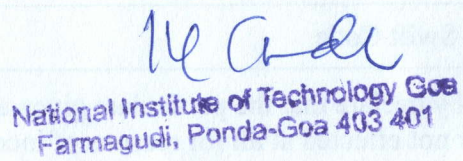 National Institute of Technology Goa
Farmagudi, Ponda-Goa 403 401